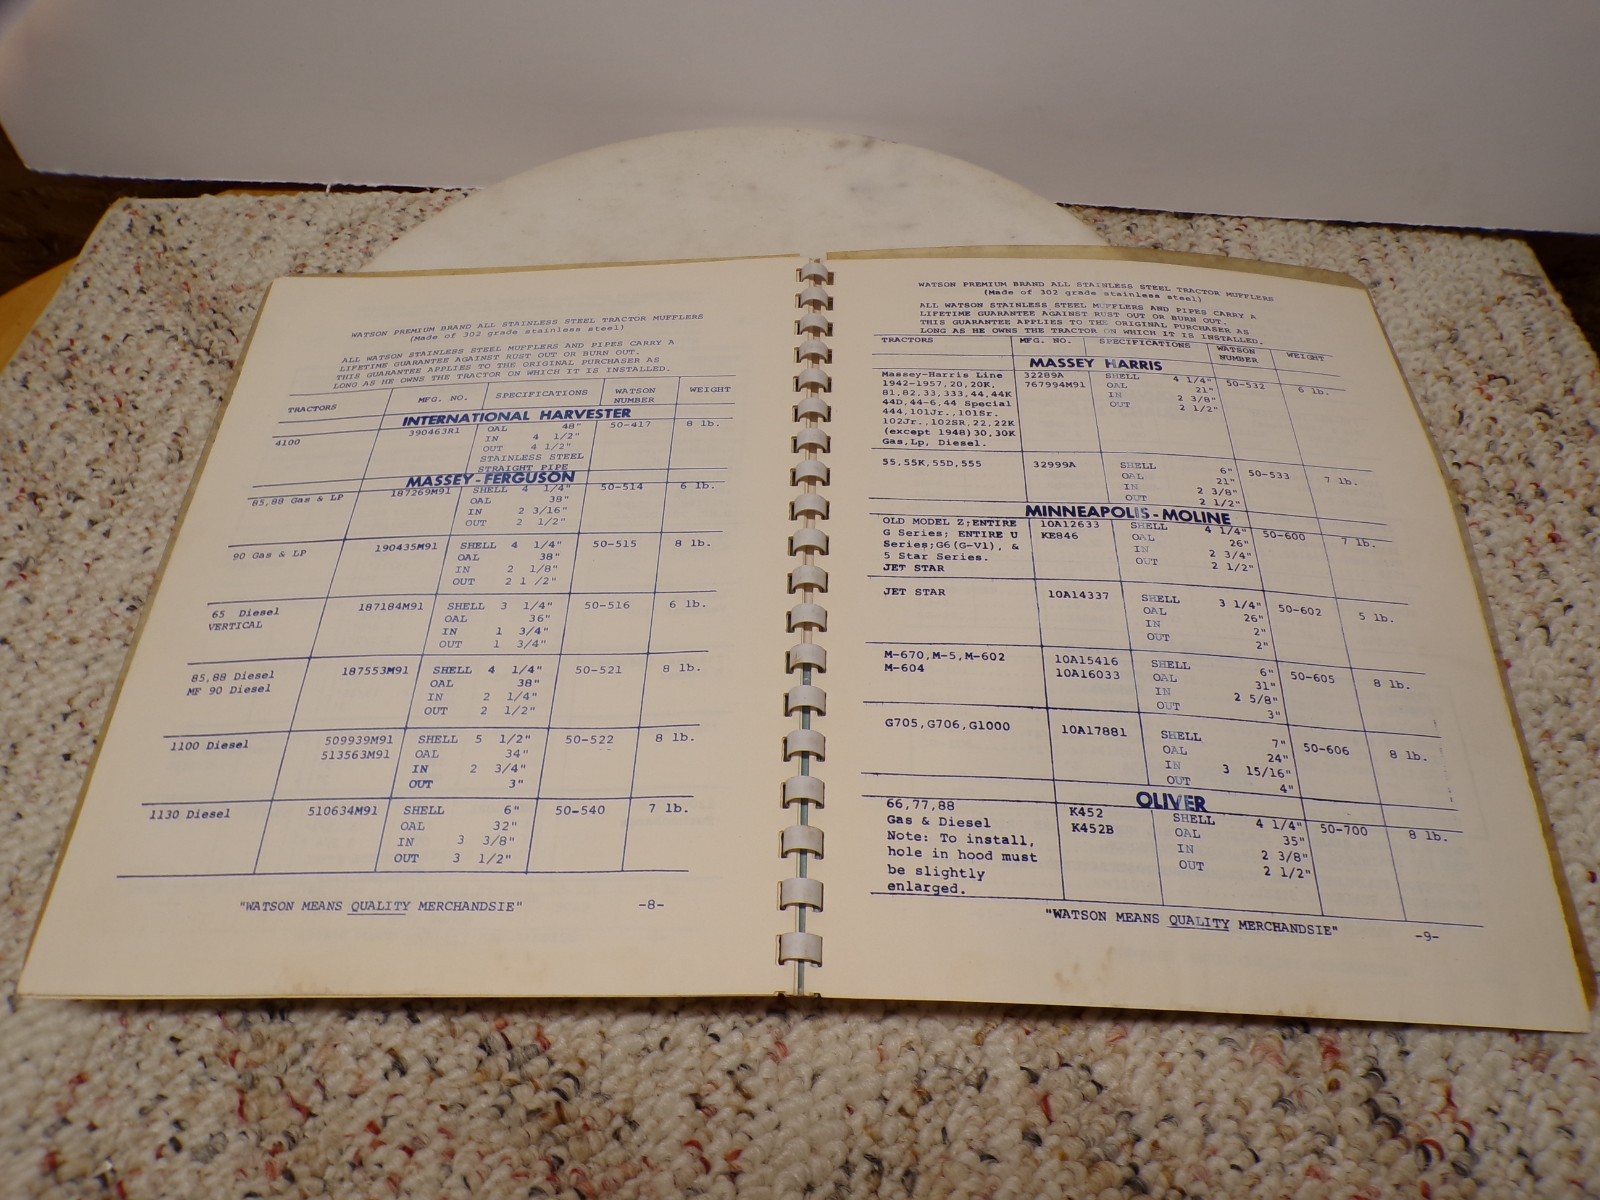 WATSON PREMIUM BRAND ALL STAINLESS STEEL TRACTOR MUFFLERS
(Made of 302 grade stainless steel)
ALL WATSON STAINLESS STEEL MUFFLERS AND PIPES CARRY A
LIFETIME GUARANTEE AGAINST RUST OUT OR BURN OUT.
THIS GUARANTEE APPLIES TO THE ORIGINAL PURCHASER AS
LONG AS HE OWNS THE TRACTOR ON WHICH IT IS INSTALLED.
TRACTORS MFG. NO. SPECIFICATIONS WATSON NUMBER WEIGHT
INTERNATIONAL HARVESTER
4100 390463R1 OAL 48" 50-417 8 lb.
IN 4 1/2"
OUT 4 1/2"
STAINLESS STEEL
STRAIGHT PIPE
MASSEY-FERGUSON
85,88 Gas & LP 187269M91 SHELL 4 1/4" 50-514 6 lb.
OAL 38"
IN 2 3/16"
OUT 2 1/2"
90 Gas & LP 190435M91 SHELL 4 1/4" 50-515 8 lb.
OAL 38"
IN 2 1/8"
OUT 2 1/2"
65 Diesel 187184M91 SHELL 3 1/4" 50-516 6 lb.
VERTICAL OAL 36"
IN 1 3/4"
OUT 1 3/4"
85,88 Diesel 187553M91 SHELL 4 1/4" 50-521 8 lb.
MF 90 Diesel OAL 38"
IN 2 1/4"
OUT 2 1/2"
1100 Diesel 509939M91 SHELL 5 1/2" 50-522 8 lb.
513563M91 OAL 34"
IN 2 3/4"
OUT 3"
1130 Diesel 510634M91 SHELL 6" 50-540 7 lb.
OAL 32"
IN 3 3/8"
OUT 3 1/2"
"WATSON MEANS QUALITY MERCHANDSIE" -8-
WATSON PREMIUM BRAND ALL STAINLESS STEEL TRACTOR MUFFLERS
(Made of 302 grade stainless steel)
ALL WATSON STAINLESS STEEL MUFFLERS AND PIPES CARRY A
LIFETIME GUARANTEE AGAINST RUST OUT OR BURN OUT.
THIS GUARANTEE APPLIES TO THE ORIGINAL PURCHASER AS
LONG AS HE OWNS THE TRACTOR ON WHICH IT IS INSTALLED.
TRACTORS MFG. NO. SPECIFICATIONS WATSON NUMBER WEIGHT
MASSEY HARRIS
Massey-Harris Line 32289A SHELL 4 1/4" 50-532 6 lb.
1942-1957,20,20K, 767994M91 OAL 21"
81,82,33,333,44,44K IN 2 3/8"
44D,44-6,44 Special OUT 2 1/2"
444,101Jr.,101Sr.
102Jr.,102SR,22,22K
(except 1948)30,30K
Gas,Lp, Diesel.
55,55K,55D,555 32999A SHELL 6" 50-533 7 lb.
OAL 21"
IN 2 3/8"
OUT 2 1/2"
MINNEAPOLIS-MOLINE
OLD MODEL Z;ENTIRE 10A12633 SHELL 4 1/4" 50-600 7 lb.
G Series; ENTIRE U KE846 OAL 26"
Series;G6(G-V1), & IN 2 3/4"
5 Star Series. OUT 2 1/2"
JET STAR
JET STAR 10A14337 SHELL 3 1/4" 50-602 5 lb.
OAL 26"
IN 2"
OUT 2"
M-670,M-5,M-602 10A15416 SHELL 6" 50-605 8 lb.
M-604 10A16033 OAL 31"
IN 2 5/8"
OUT 3"
G705,G706,G1000 10A17881 SHELL 7" 50-606 8 lb.
OAL 24"
IN 3 15/16"
OUT 4"
OLIVER
66,77,88 K452 SHELL 4 1/4" 50-700 8 lb.
Gas & Diesel K452B OAL 35"
Note: To install, IN 2 3/8"
hole in hood must OUT 2 1/2"
be slightly
enlarged.
"WATSON MEANS QUALITY MERCHANDSIE" -9-